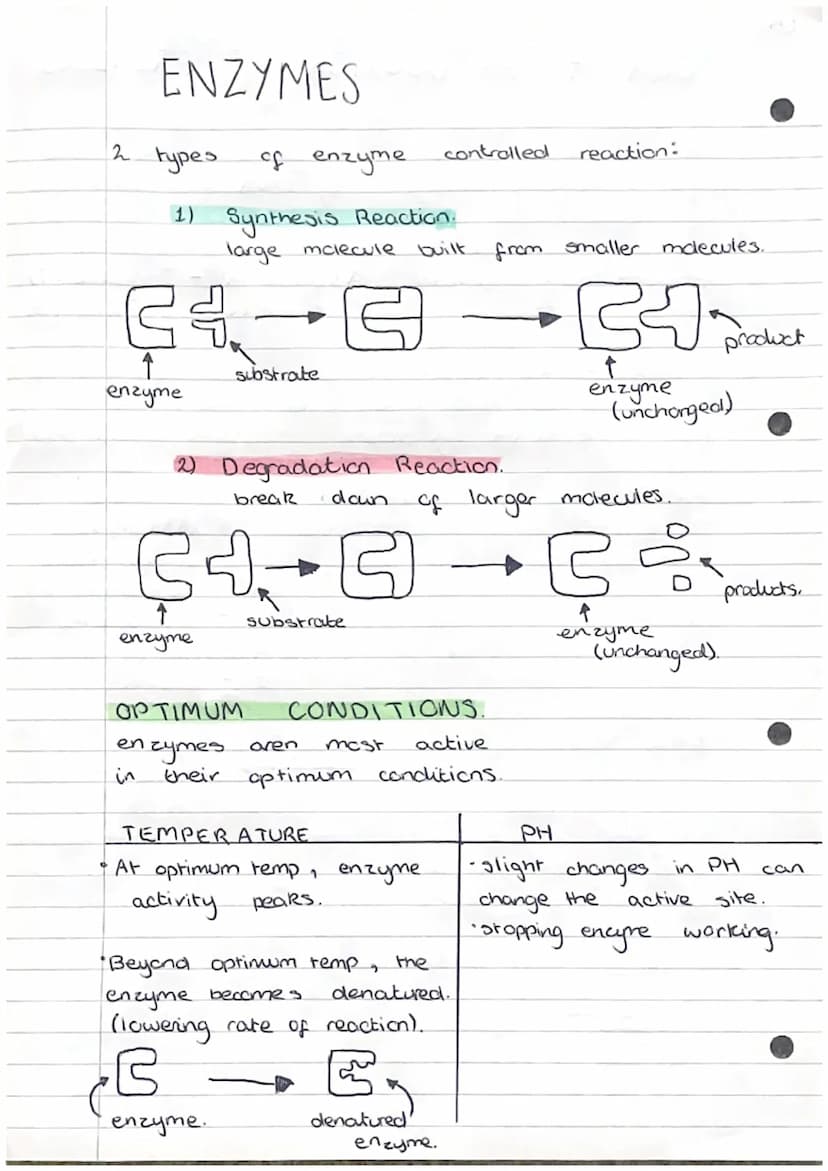 ENZYMES
2 types of enzyme controlled reaction:
1) Synthesis Reaction.
large molecule built from smaller molecules.
product
substrate
enzyme
enzyme
(unchanged)
2) Degradation Reaction.
break down of larger molecules.
products.
substrate
enzyme
enzyme
(unchanged).
OPTIMUM CONDITIONS.
enzymes aren most active
in their optimum conditions.
TEMPERATURE
• At optimum temp, enzyme
activity peaks.
• Beyond optimum temp, the
enzyme becomes denatured.
(lowering rate of reaction).
enzyme.
denatured
enzyme.
PH
· slight changes in PH can
change the active site.
· stopping encyre working.